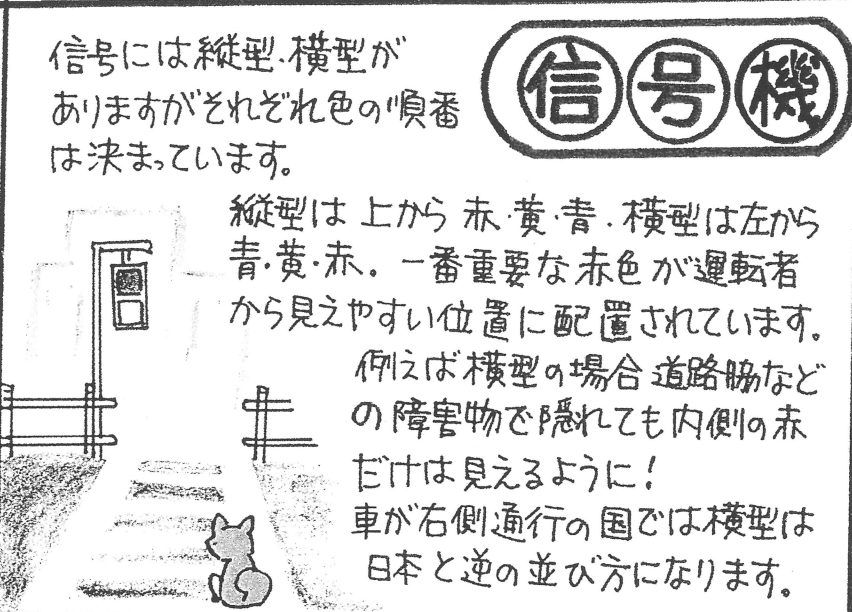 信号機
信号には縦型、横型が
ありますがそれぞれ色の順番
は決まっています。
縦型は上から赤・黄・青、横型は左から
青・黄・赤。一番重要な赤色が運転者
から見えやすい位置に配置されています。
例えば横型の場合道路脇など
の障害物で隠れても内側の赤
だけは見えるように!
車が右側通行の国では横型は
日本と逆の並び方になります。